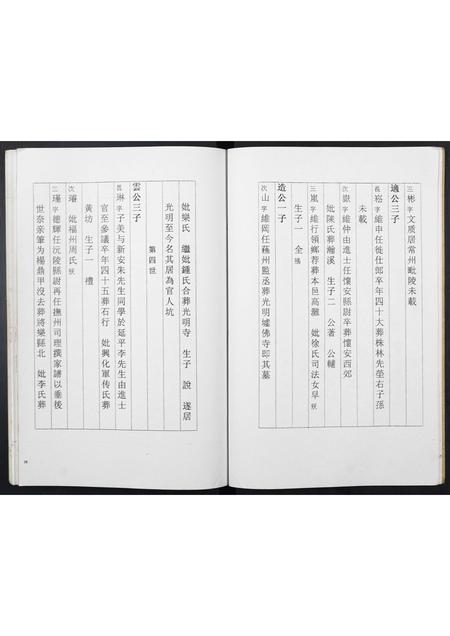 三彬字文质居常州毗陵未載
適公三子
長崧字維申任從仕郎卒年四十大葬株林先塋右子孫
未載
次嶽字維仲由進士任懷安縣尉卒葬懷安西郊
妣陳氏葬瀚溪 生子二 公著 公輔
三嵐字維行領鄉荐葬本邑高灘 妣徐氏司法女早
生子一 全
造公一子
次山字維岡任蘄州監丞葬光明墟佛寺即其墓
妣欒氏 繼妣鍾氏合葬光明寺 生子 說 遂居
光明至今名其居為官人坑
第四世
雲公三子
長琳字子美与新安朱先生同學於延平李先生由進士
官至參議卒年四十五葬石行 妣興化軍传氏葬
黃坊 生子一 禮
次璿 妣福州周氏
二瑾字德輝任沅陵縣尉再任撫州司理撰家譜以垂後
世奈亲筆为楊鼎甲沒去葬將樂縣北 妣李氏葬